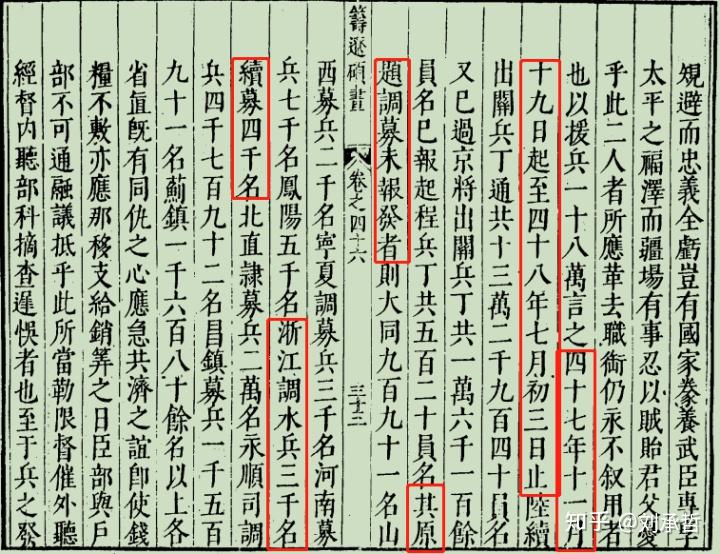 規避而忠義全虧豈有國家豢養武臣專享
太平之福澤而疆場有事忍以賊貽君父憂
乎此二人者所應革去職銜仍永不叙用者
也以援兵一十八萬言之四十七年十一月
十九日起至四十八年七月初三日止陸續
出關兵丁通共十三萬二千九百四十員名
又已過京將出關兵丁共一萬六千一百餘
員名已報起程兵丁共五百二十員名其原
題調募未報發者則大同九百九十一名山
籌遼碩畫 卷之四十六 三十三
西募兵一千名寧夏調募兵三千名河南募
兵七千名鳳陽五千名浙江調水兵三千名
續募四千名北直隸募兵二萬名永順司調
兵四千七百九十二名昌鎮募兵一千五百
九十一名薊鎮一千六百八十餘名以上各
省直旣有同仇之心應急共濟之誼卽使錢
糧不敷亦應那移支給銷筭之日臣部與戶
部不可通融議抵乎此所當勒限督催外聽
經督內聽部科摘查遲悞者也至于兵之發
知乎 @刘承哲